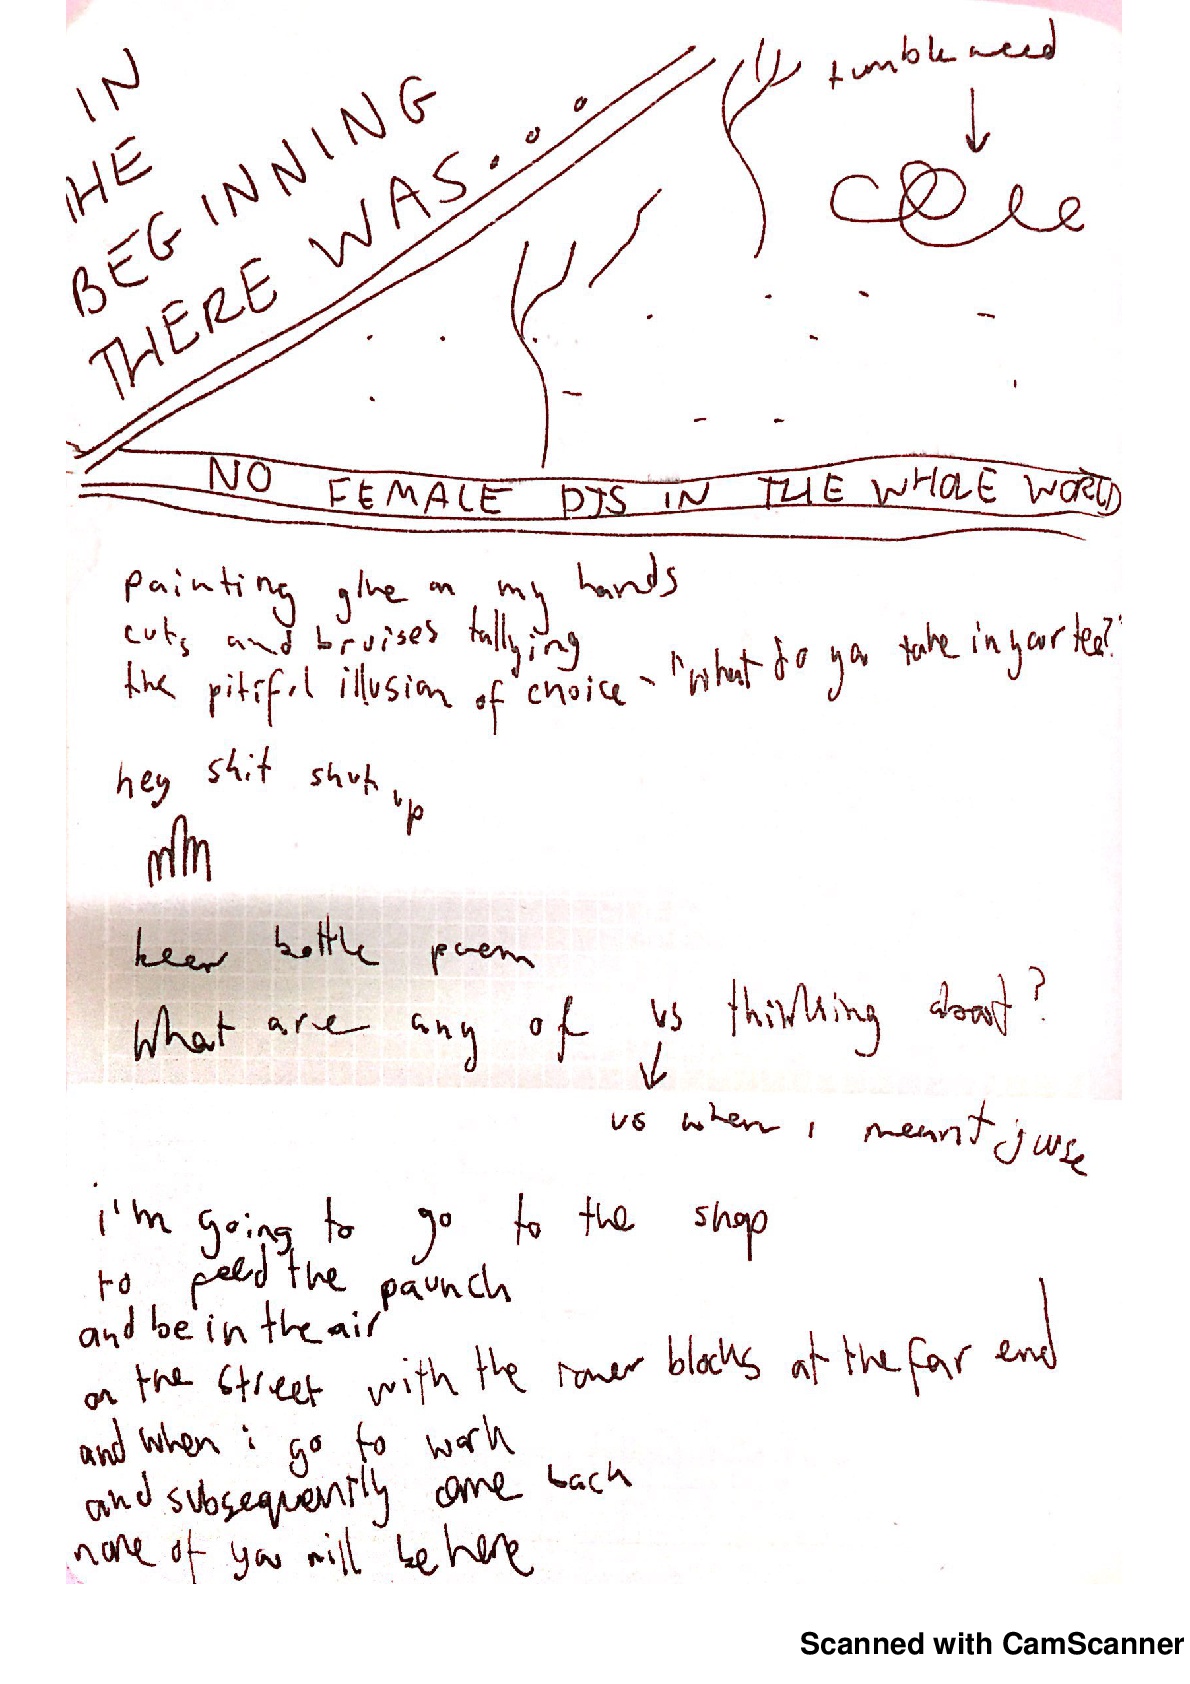 IN
THE
BEGINNING
THERE WAS...
tumbleweed
NO FEMALE DJS IN THE WHOLE WORLD
painting glue on my hands
cuts and bruises tallying
the pitiful illusion of choice - "what do you take in your tea?"
hey shit shut up
beer bottle poem
What are any of us thinking about?
us when i meant
i'm going to go to the shop
to feed the paunch
and be in the air
on the street with the tower blocks at the far end
and when i go to work
and subsequently come back
none of you will be here
Scanned with CamScanner